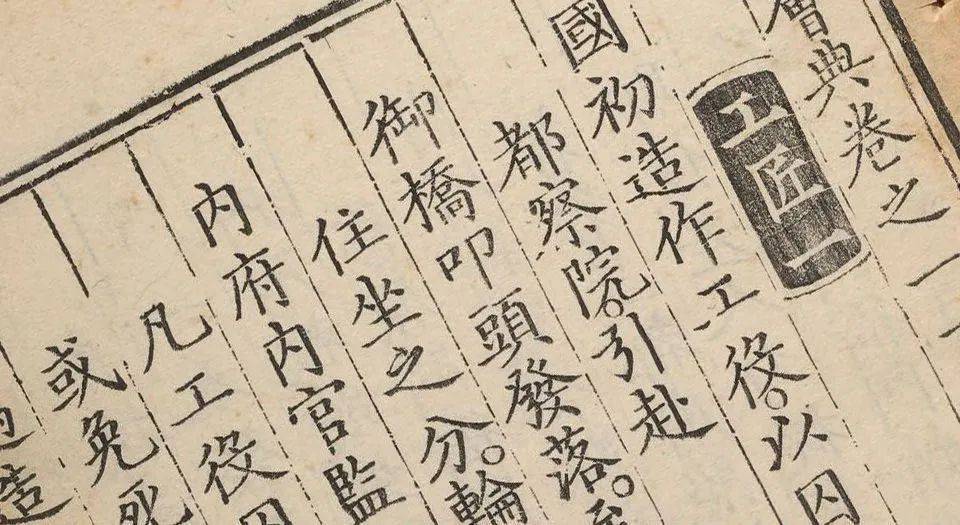 會典卷之一
工匠一
國初造作工役。以囚
都察院。引赴
御橋叩頭發落。至
住坐之分。輪
内府内官監
凡工役囚
或免死
造